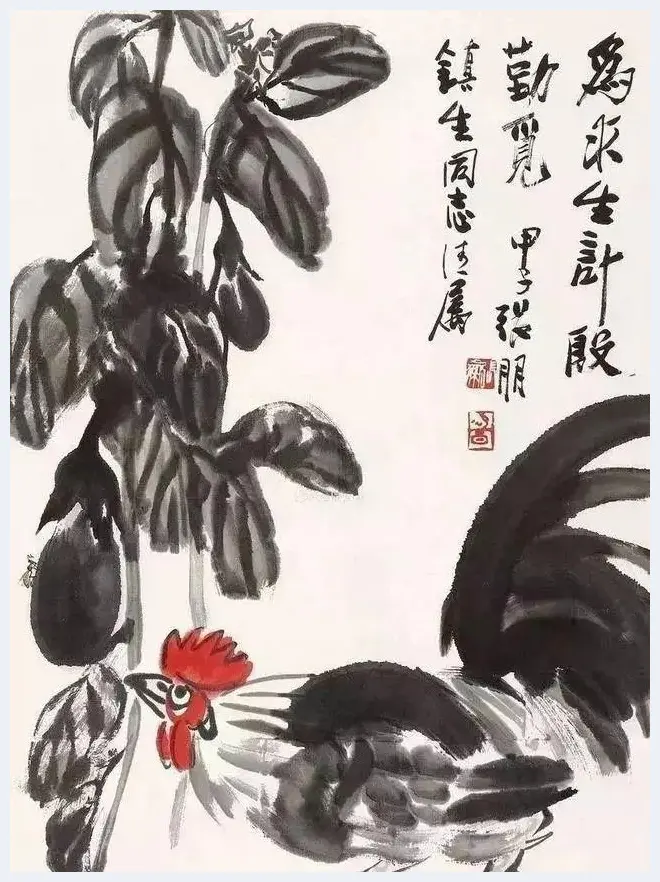 為求生計殷
勤覓 甲子張朋
鎮生同志清屬